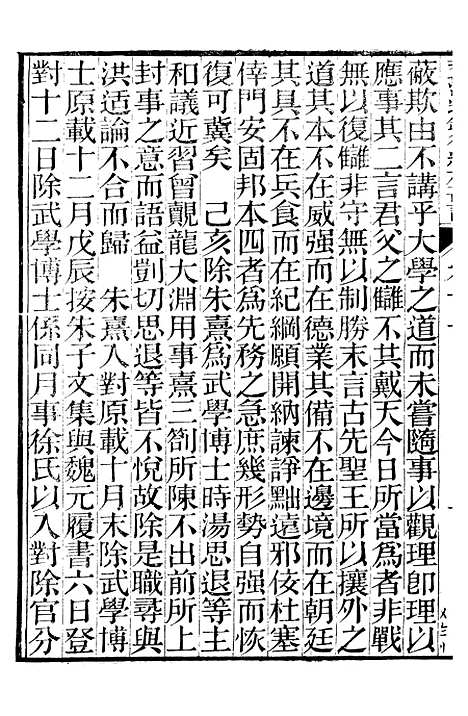 蔽欺由不講乎大學之道而未嘗隨事以觀理卽理以
應事其二言君父之讎不其戴天今日所當爲者非戰
無以復讎非守無以制勝末言古先聖王所以攘外之
道其本不在威强而在德業其備不在邊境而在朝廷
其具不在兵食而在紀綱願開納諫諍黜遠邪佞杜塞
倖門安固邦本四者爲先務之急庶幾形勢自强而恢
復可冀矣　己亥除朱熹爲武學博士時湯思退等主
和議近習曾覿龍大淵用事熹三劄所陳不出前所上
封事之意而語益剴切思退等皆不悅故除是職尋與
洪适論不合而歸　朱熹入對原載十月末除武學博
士原載十二月戊辰按朱子文集與魏元履書六日登
對十二日除武學博士係同月事徐氏以入對除官分